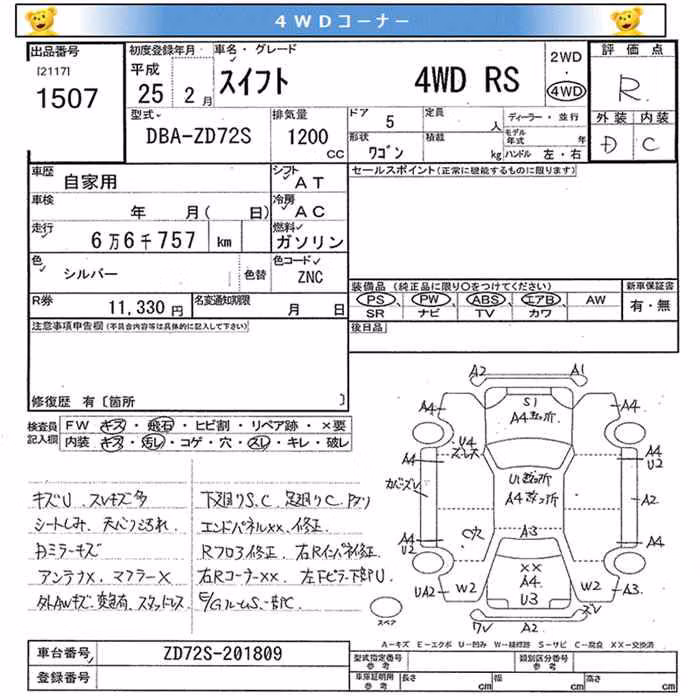 4WDコーナー
出品番号
[2117]
1507
初度登録年月
平成
25年 2月
車名・グレード
スイフト 4WD RS
2WD
・
4WD
評価点
R
外装 内装
D C
型式
DBA-ZD72S
排気量
1200
CC
ドア 5
定員 人
形状 ワゴン
積載 kg
ディーラー・並行
モデル年式 年
ハンドル 左・右
車歴 自家用
シフト AT
車検 年 月( 日)
冷房 AC
走行 6万6千757 km
燃料 ガソリン
色 シルバー 色替
色コード ZNC
R券 11,330円
名変通知期限 月 日
セールスポイント(正常に機能するものに限ります)
装備品 (純正品に限り○をつけてください)
PS PW ABS エアB AW
SR ナビ TV カワ
新車保証書
有・無
後日品
注意事項申告欄(不具合内容等は具体的に記入して下さい)
修復歴 有〔箇所 〕
検査員記入欄
FW キズ・飛石・ヒビ割・リペア跡・×要
内装 キズ・汚レ・コゲ・穴・スレ・キレ・破レ
キズU スレキズ多
シートしみ、
Dミラーキズ
アンテナX、マフラーX
外AWキズ、スタッドレス
下廻りS、C 足廻りC
エンドパネルXX、修正
Rフロア修正、右Rインパネ修正
右RコーナーXX、左Fピラー下部U
E/GルームS、一部C
A2 A1
A4 S1 A4
A4数ヶ所
U4
A4 A4
U2
U1数ヶ所
A4数ヶ所
A2
C穴 A3
A4 A4
U2
XX
A4
U3
UA2 W2 W2 A3
A2
スペア
A-キズ E-エクボ U-凹み W-補修跡 S-サビ C-腐食 XX-交換済
車台番号 ZD72S-201809
登録番号
型式指定番号参考
類別区分番号参考
車庫証明用参考
長さ cm 幅 cm 高さ cm